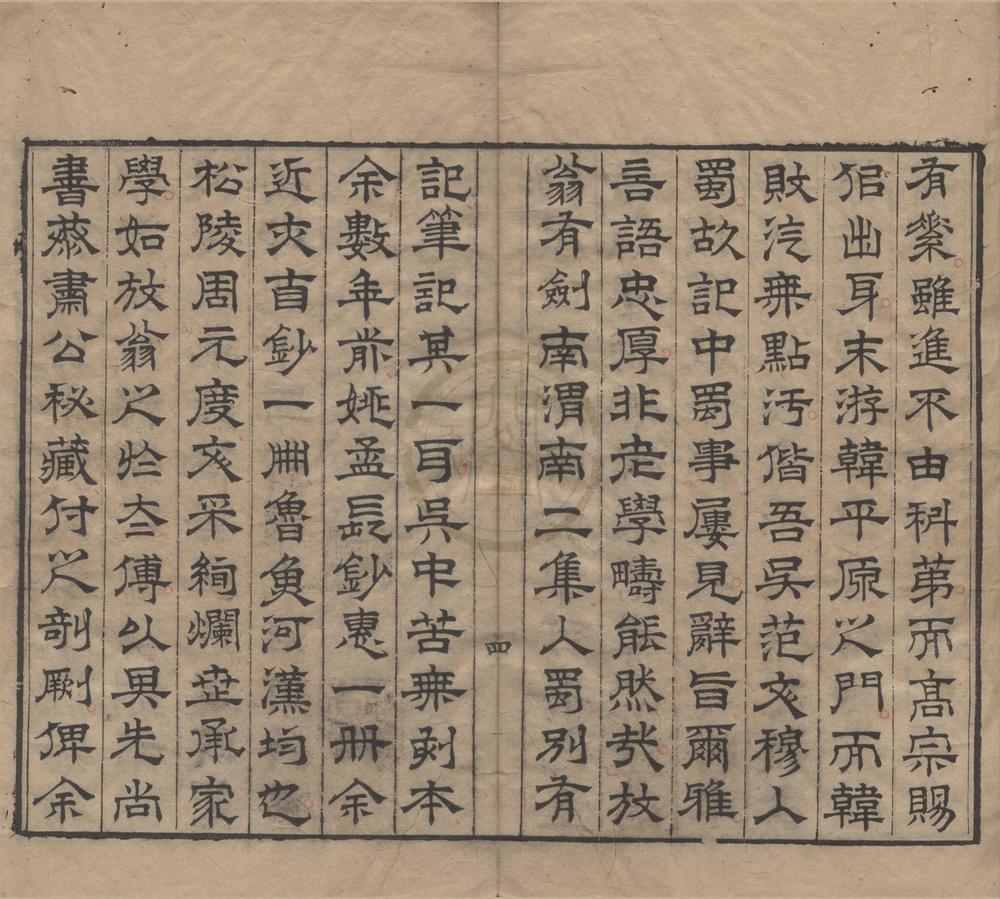 有綮雖進不由科第而髙宗賜
出身末游韓平原之門而韓
敗汔無點汚偕吾吳范文穆入
蜀故記中蜀事屢見辭旨爾雅
言語忠厚非老學疇能然哉放
翁有劍南渭南二集入蜀別有
四
記筆記其一耳吳中苦無刻本
余數年前姚孟長鈔惠一册余
近又自鈔一冊魯魚河漢均也
松陵周元度文采絢爛世承家
學如放翁之於太傅公與先尚
書恭肅公秘藏付之剞劂俾余